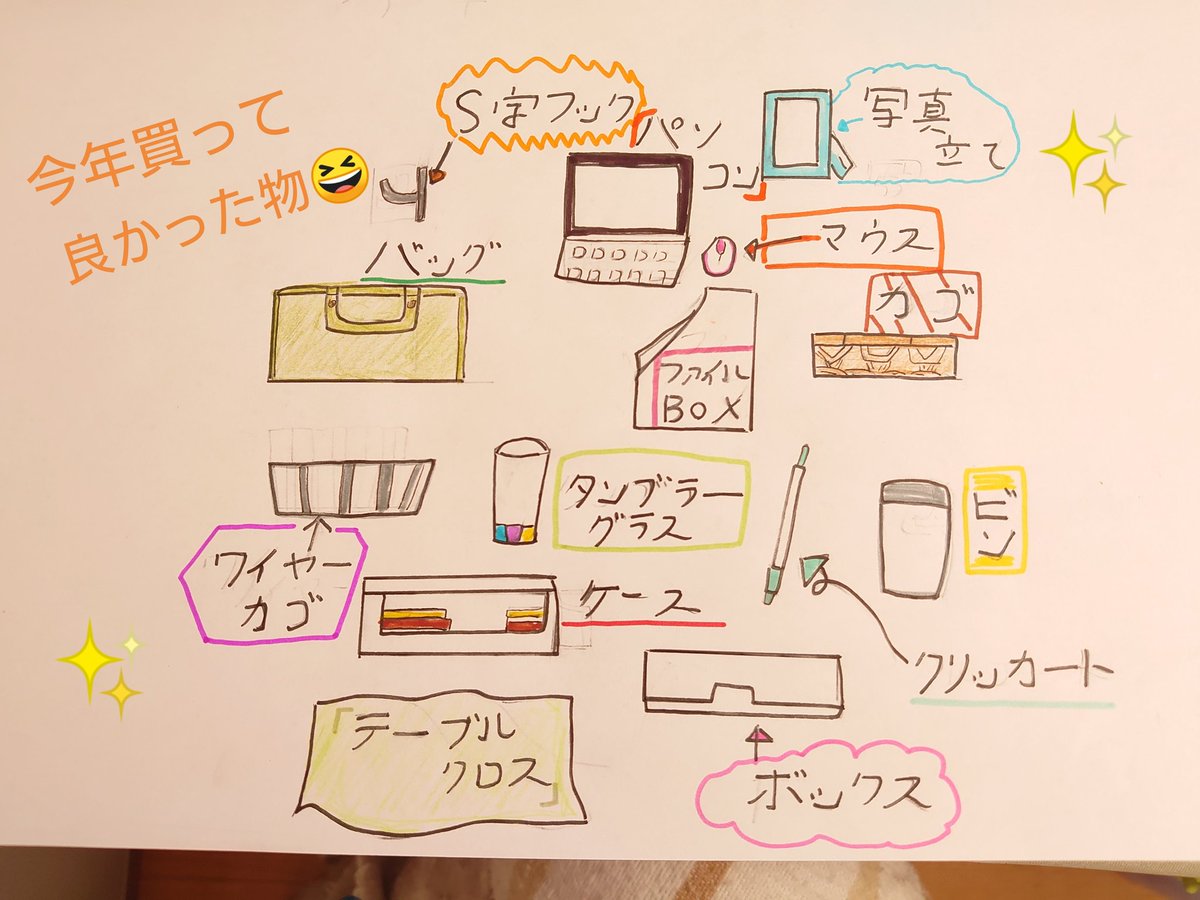 今年買って
良かった物
S字フック
パソ
コン
写真
立て
マウス
バッグ
カゴ
ファイル
BOX
タンブラー
グラス
ビン
ワイヤー
カゴ
ケース
クリッカート
「テーブル
クロス」
ボックス